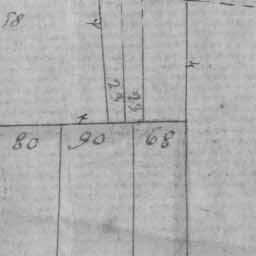 58
23
23
80 90 68